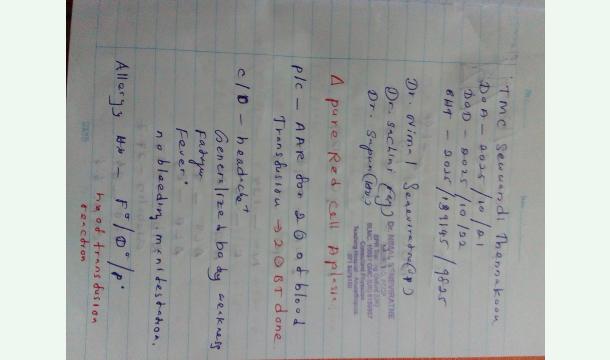 TMC Sewwandi Thennakoon
DOA - 2025/10/21
DOD - 2025/10/22
BHT - 2025/189145/9825
Dr. Nirmal Senevirathne (cp)
Dr. Sachini (reg)
Dr. Sapun (HO)
Dr. NIRMAL SENEVIRATNE
Δ pure Red cell Aplasia
P/C - AAR for 2 of blood
Transfusion → 2 BT done
C/O - headache+
Generalized body weakness
Fever°
no bleeding manifestation.
Allergy Hx - F°/D°/P°
hx of transfusion
reaction